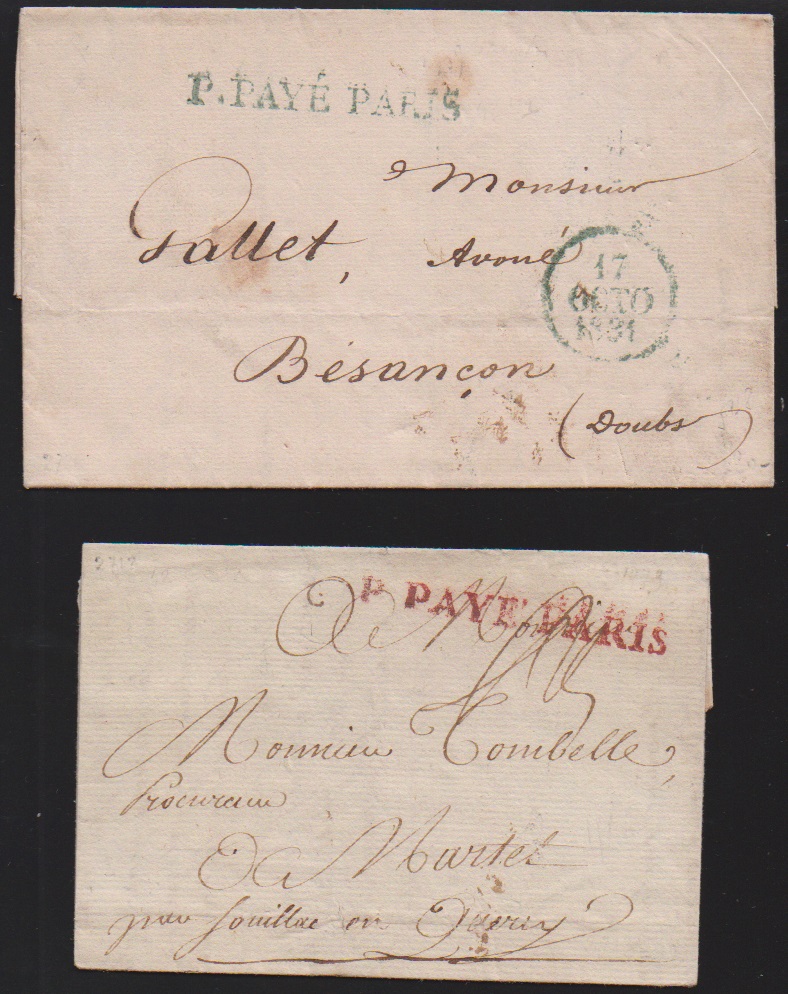 P. PAYÉ PARIS
Monsieur
Pallet, Avoué
17
OCTO
1831
Bésançon
(Doubs)
2717
P. PAYÉ PARIS
A Monsieur
Monsieur Tombelle,
Procureur
A Martel
par Souillac en Quercy